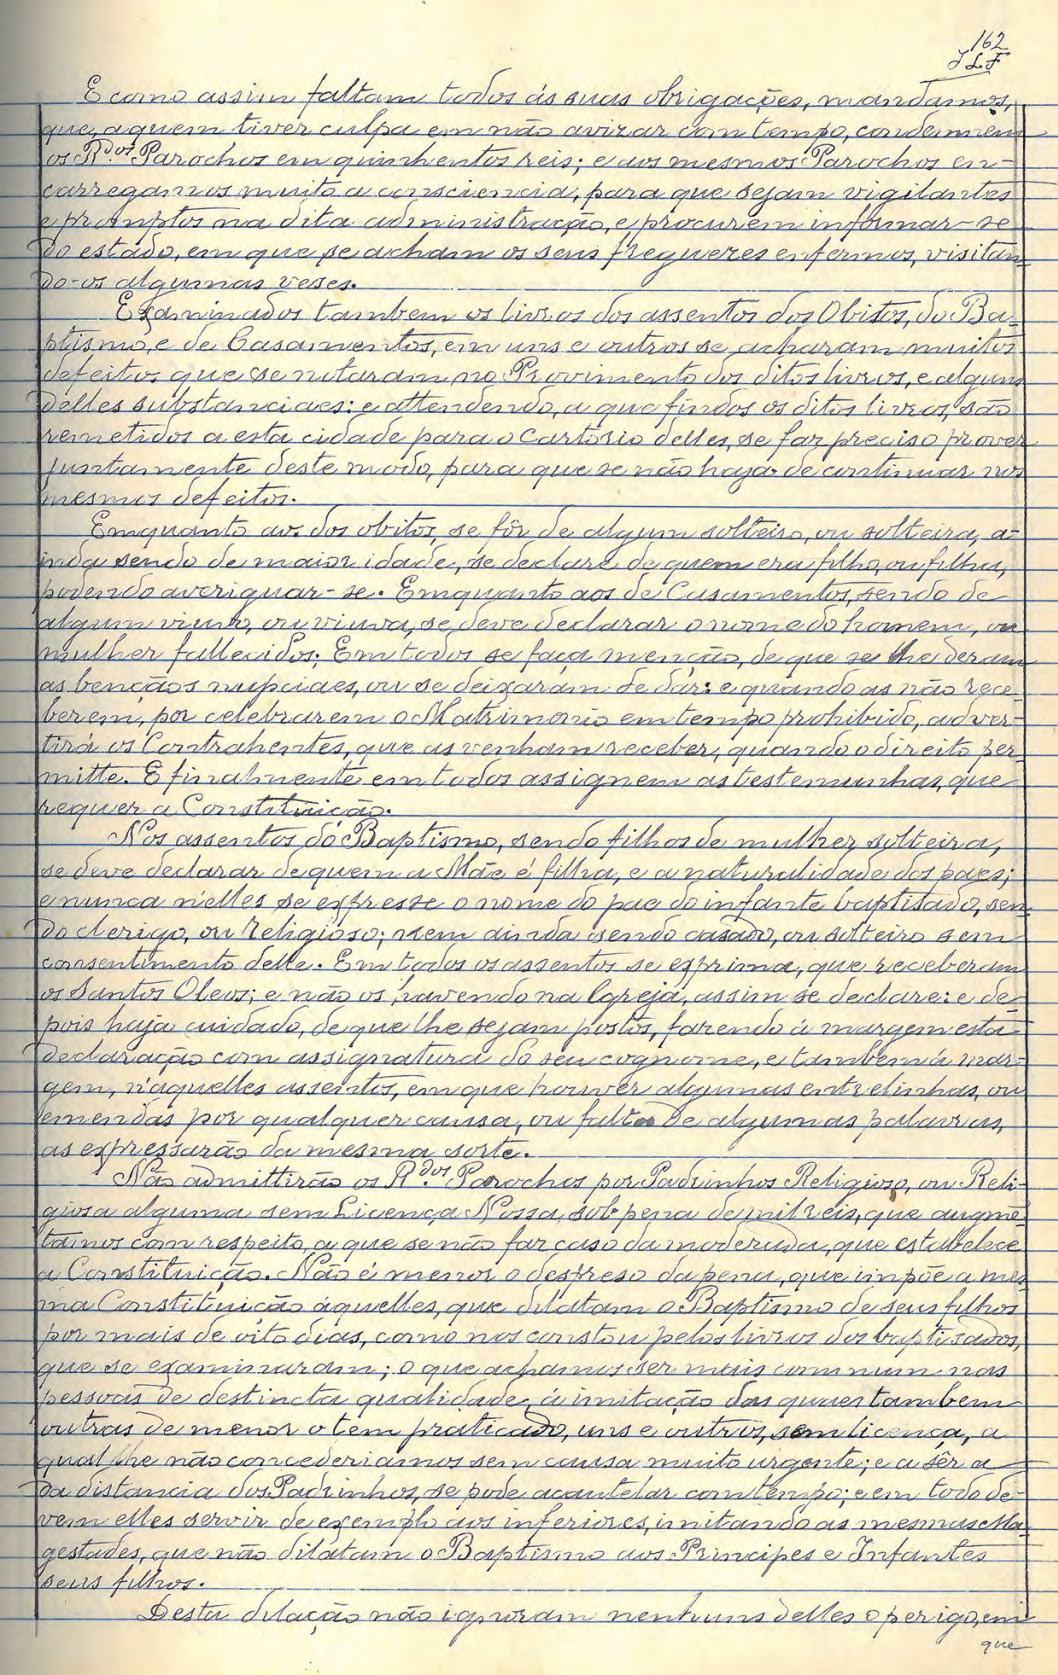 162
JLF
E como assim faltam todos ás suas obrigações, mandamos,
que, a quem tiver culpa em não avizar com tempo, condemnem
os R.dos Parochos em quinhentos reis; e aos mesmos Parochos en-
carregamos muito a consciencia, para que sejam vigilantes
e promptos na dita administração, e procurem informar-se
do estado, em que se acham os seus freguezes enfermos, visitan
do-os algumas vezes.
Examinados tambem os livros dos assentos dos Obitos, do Ba-
ptismo, e de Casamentos, em uns e outros se acharam muitos
defeitos que se notaram no Provimento dos ditos livros, e alguns
delles substanciaes: e attendendo, a que findos os ditos livros, são
remetidos a esta cidade para o Cartorio delles, se faz preciso prover
juntamente deste modo, para que se não haja de continuar nos
mesmos defeitos.
Emquanto aos dos obitos, se fôr de algum solteiro, ou solteira, a-
inda sendo de maior idade, se declare de quem era filho, ou filha,
podendo averiguar-se. Emquanto aos de Casamentos, sendo de
algum viuvo, ou viuva, se deve declarar o nome do homem, ou
mulher fallecidos; Em todos se faça menção, de que se lhe deram
as bençãos nupciaes, ou se deixaram de dár: e quando as não rece-
berem, por celebrarem o Matrimonio em tempo prohibido, adver-
tirá os Contrahentes, que as venham receber, quando o direito per
mitte. E finalmente em todos assignem as testemunhas, que
requer a Constituição.
Nos assentos do Baptismo, sendo filhos de mulher solteira,
se deve declarar de quem a Mãe é filha, e a naturalidade dos paes;
e nunca n'elles se expresse o nome do pae do infante baptisado, sen-
do clerigo, ou religioso; nem ainda sendo casado, ou solteiro sem
consentimento delle. Em todos os assentos se exprima, que receberam
os Santos Oleos; e não os havendo na Igreja, assim se declare: e de-
pois haja cuidado, de que lhe sejam postos, fazendo á margem esta
declaração com assignatura do seu cognome, e tambem á mar-
gem, n'aquelles assentos, em que houver algumas entrelinhas, ou
emendas por qualquer causa, ou falta de algumas palavras,
as expressarão da mesma sorte.
Não admittirão os R.dos Parochos por Padrinhos Religioso, ou Reli-
giosa alguma sem Licença Nossa, sob pena de mil reis, que augmẽ
tamos com respeito, a que se não faz caso da moderada, que estabelece
a Constituição. Não é menor o despreso da pena, que impõe a mes
ma Constituição áquelles, que dilatam o Baptismo de seus filhos
por mais de oito dias, como nos constou pelos livros dos baptisados,
que se examinaram; o que achamos ser mais commum nas
pessoas de destincta qualidade, á imitação das quaes tambem
outras de menor o tem praticado, uns e outros, sem licença, a
qual lhe não concederiamos sem causa muito urgente; e a sêr a
da distancia dos Padrinhos, se pode acautelar com tempo; e em todo de-
vem elles servir de exemplo aos inferiores, imitando as mesmas Ma-
gestades, que não dilatam o Baptismo aos Principes e Infantes
seus filhos.
Desta dilação não ignoram nenhuns delles o perigo, em
que